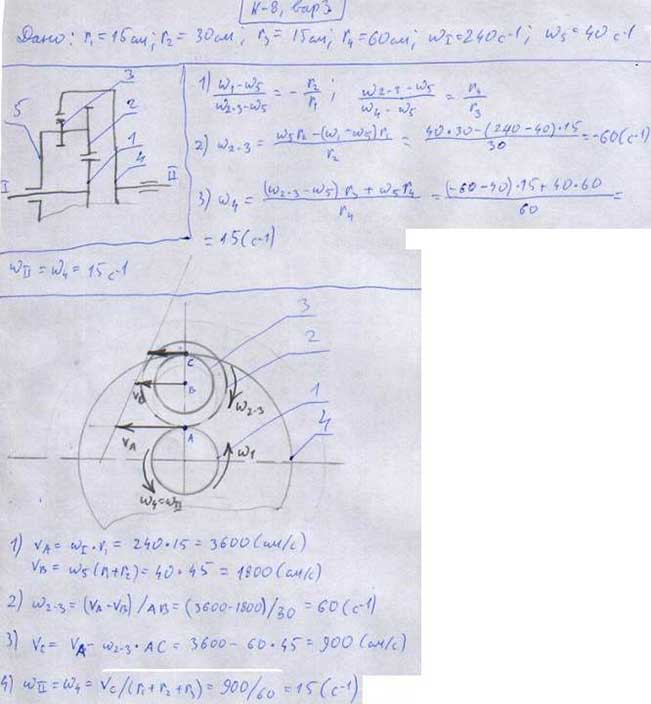 К-8, вар 3
Дано: r₁ = 15 см; r₂ = 30 см; r₃ = 15 см; r₄ = 60 см; ω_I = 240 с-1; ω₅ = 40 с-1
3
5
2
1
4
I
II
1) (ω₁-ω₅)/(ω₂₋₃-ω₅) = - r₂/r₁ ; (ω₂₋₃-ω₅)/(ω₄-ω₅) = r₄/r₃
2) ω₂₋₃ = (ω₅r₂-(ω₁-ω₅)r₁)/r₂ = (40·30-(240-40)·15)/30 = -60(с-1)
3) ω₄ = ((ω₂₋₃-ω₅)r₃ + ω₅r₄)/r₄ = ((-60-40)·15+40·60)/60 =
= 15(с-1)
ω_II = ω₄ = 15 с-1
3
2
1
4
C
B
A
V_B
V_A
ω₂₋₃
ω₁
ω₄=ω_II
1) V_A = ω_I · r₁ = 240·15 = 3600 (см/с)
V_B = ω₅(r₁+r₂) = 40·45 = 1800 (см/с)
2) ω₂₋₃ = (V_A-V_B)/AB = (3600-1800)/30 = 60(с-1)
3) V_C = V_A - ω₂₋₃·AC = 3600 - 60·45 = 900(см/с)
4) ω_II = ω₄ = V_C/(r₁+r₂+r₃) = 900/60 = 15(с-1)